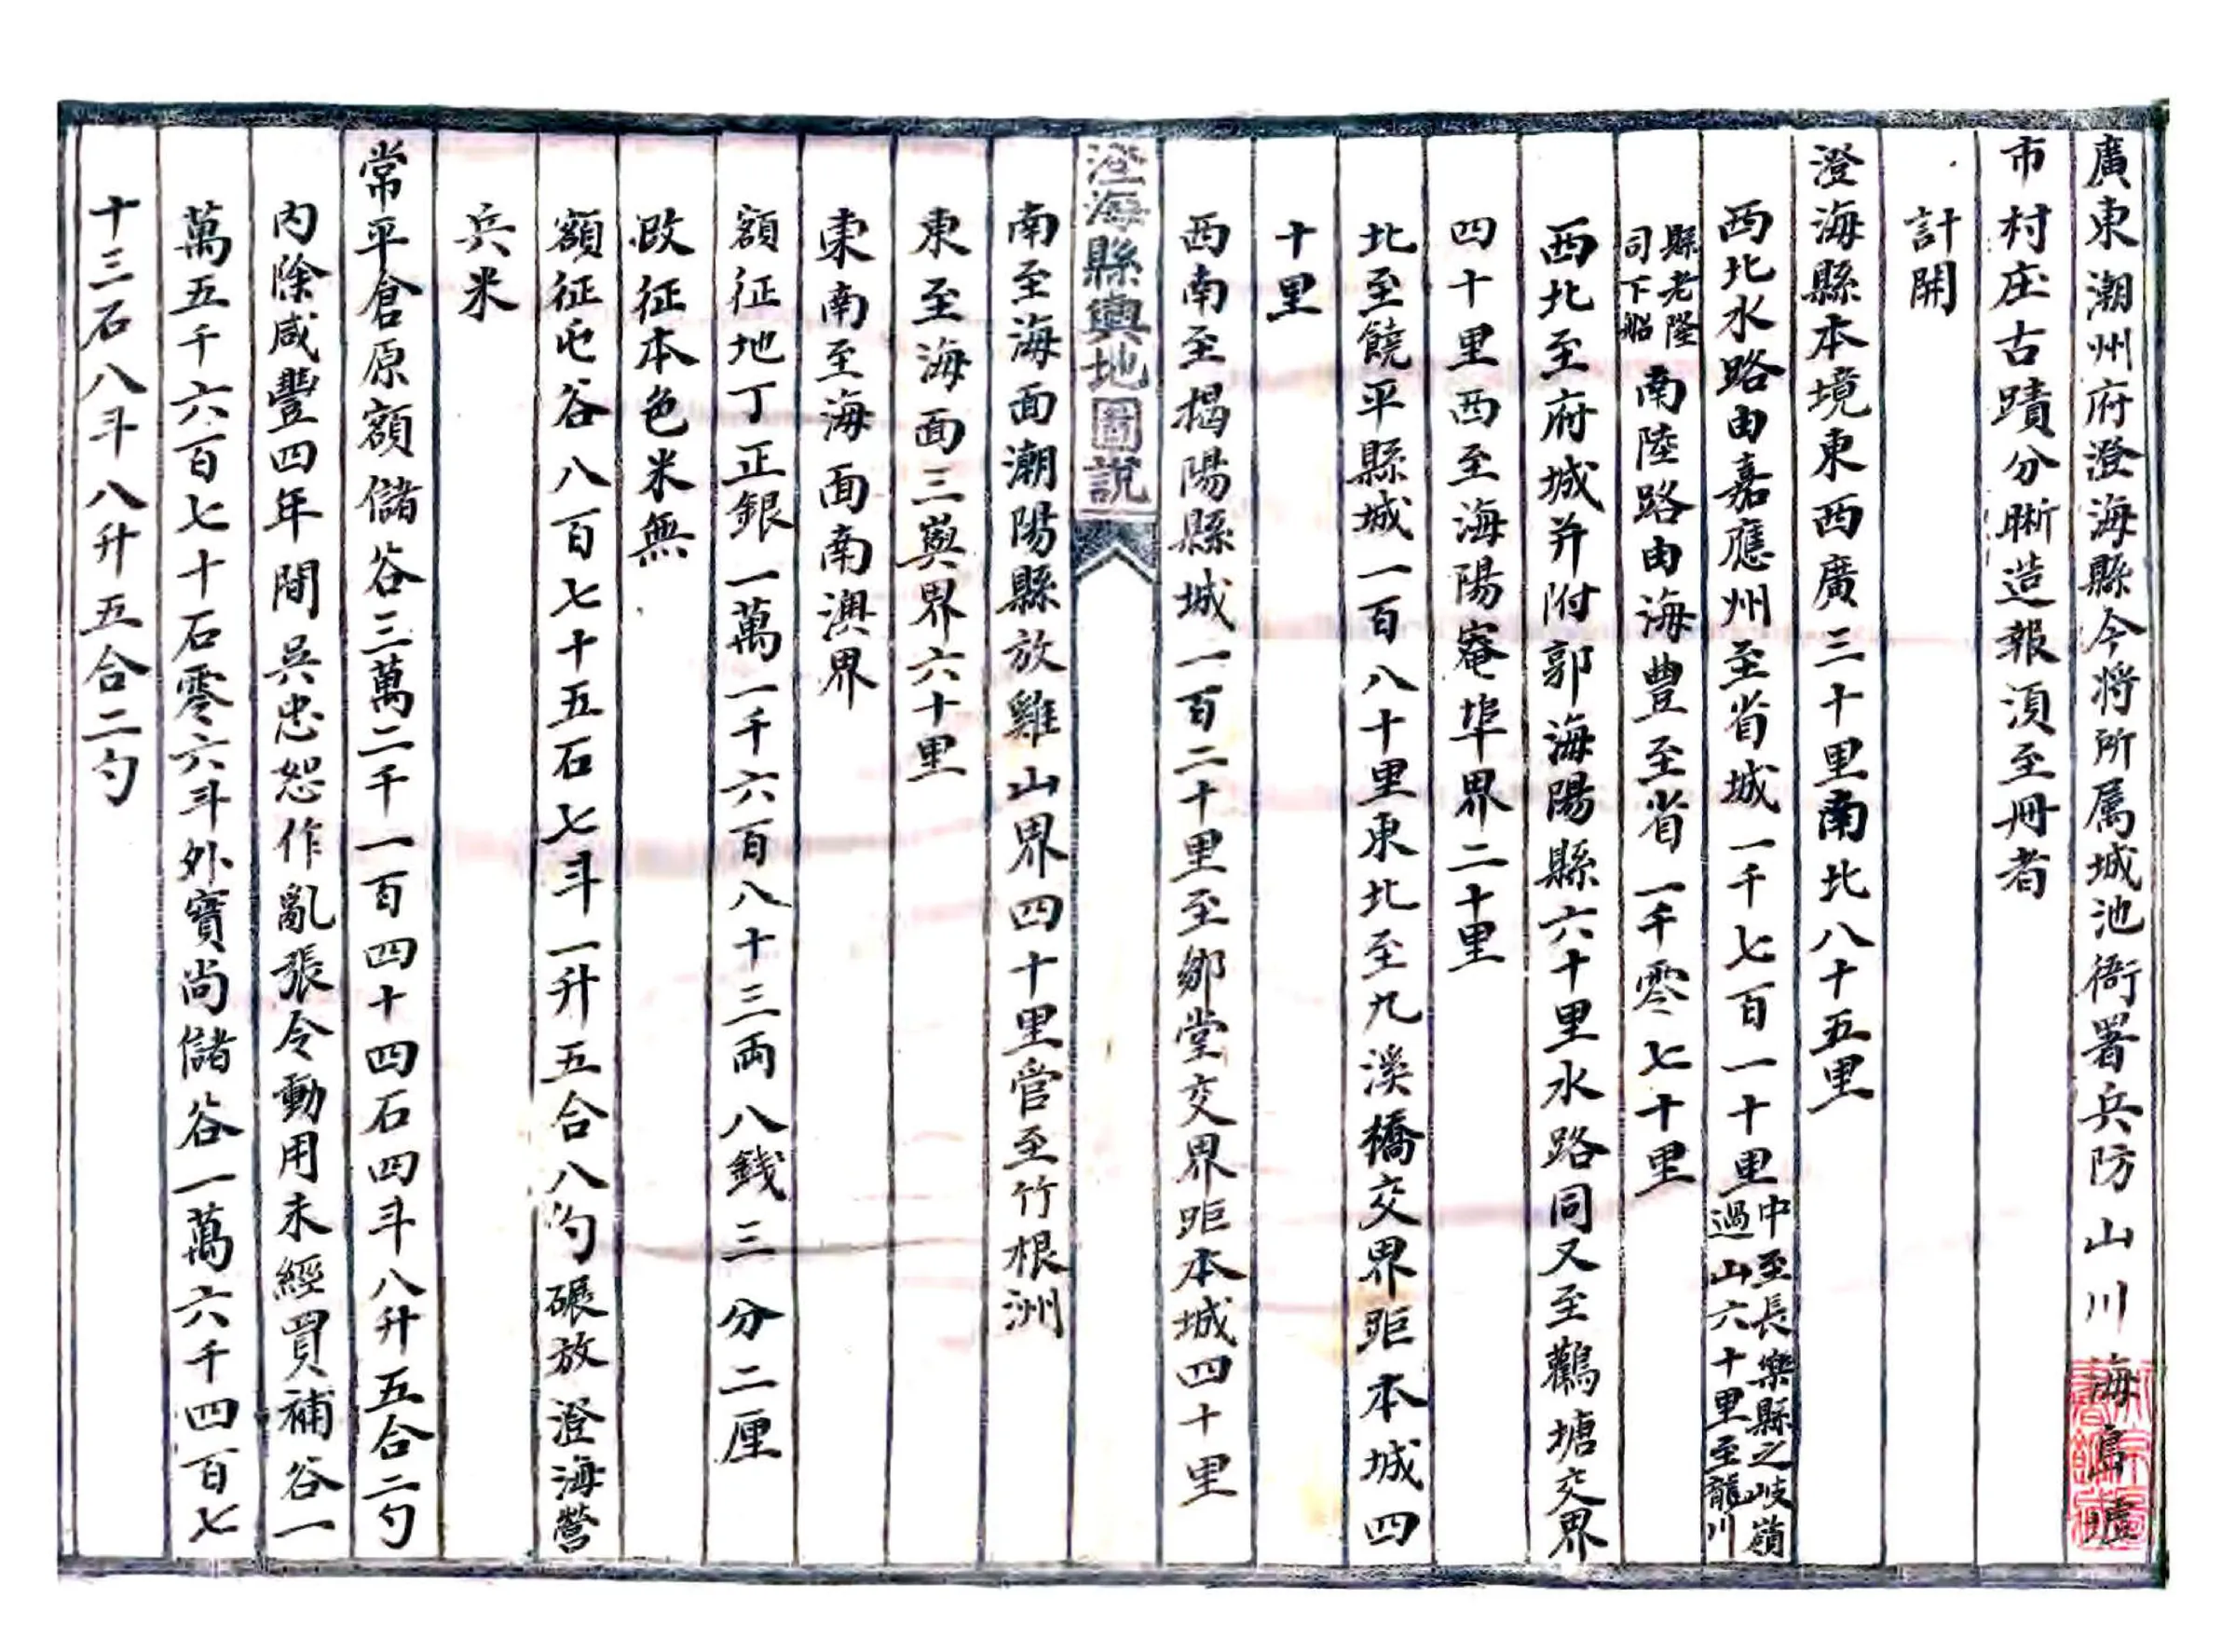 廣東潮州府澄海縣今將所属城池衙署兵防山川海島墟
市村庄古蹟分晰造報湏至冊者
計開
澄海縣本境東西廣三十里南北八十五里
西北水路由嘉應州至省城一千七百一十里中至長樂縣之岐嶺過山六十里至龍川
縣老隆司下船南陸路由海豐至省一千零七十里
西北至府城并附郭海陽縣六十里水路同又至鸛塘交界
四十里西至海陽菴埠界二十里
北至饒平縣城一百八十里東北至九溪橋交界距本城四
十里
西南至揭陽縣城一百二十里至鄒堂交界距本城四十里
澄海縣輿地圖說
南至海面潮陽縣放雞山界四十里管至竹根洲
東至海面三與界六十里
東南至海面南澳界
額征地丁正銀一萬一千六百八十三両八錢三分二厘
改征本色米無
額征屯谷八百七十五石七斗一升五合八勺碾放澄海營
兵米
常平倉原額儲谷三萬二千一百四十四石四斗八升五合二勺
內除咸豐四年間吳忠恕作亂張令動用未經買補谷一
萬五千六百七十石零六斗外實尚儲谷一萬六千四百七
十三石八斗八升五合二勺